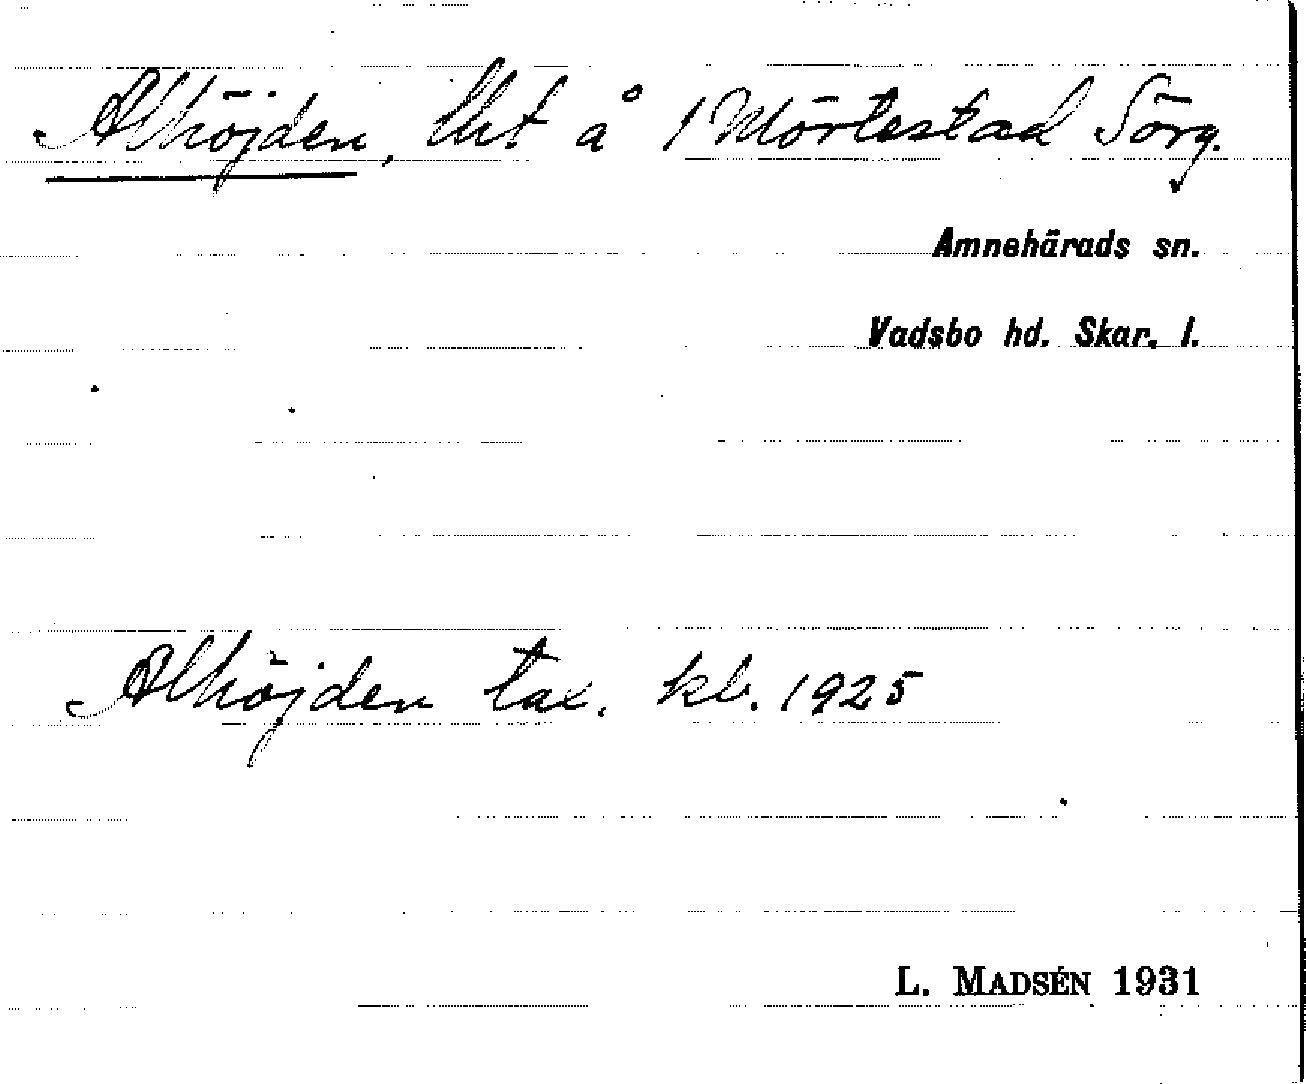 Alhöjden, lht å 1 Mörtestad Sörg.
Amnehärads sn.
Vadsbo hd. Skar. l.
Alhöjden tax. kb. 1925
L. MADSÉN 1931